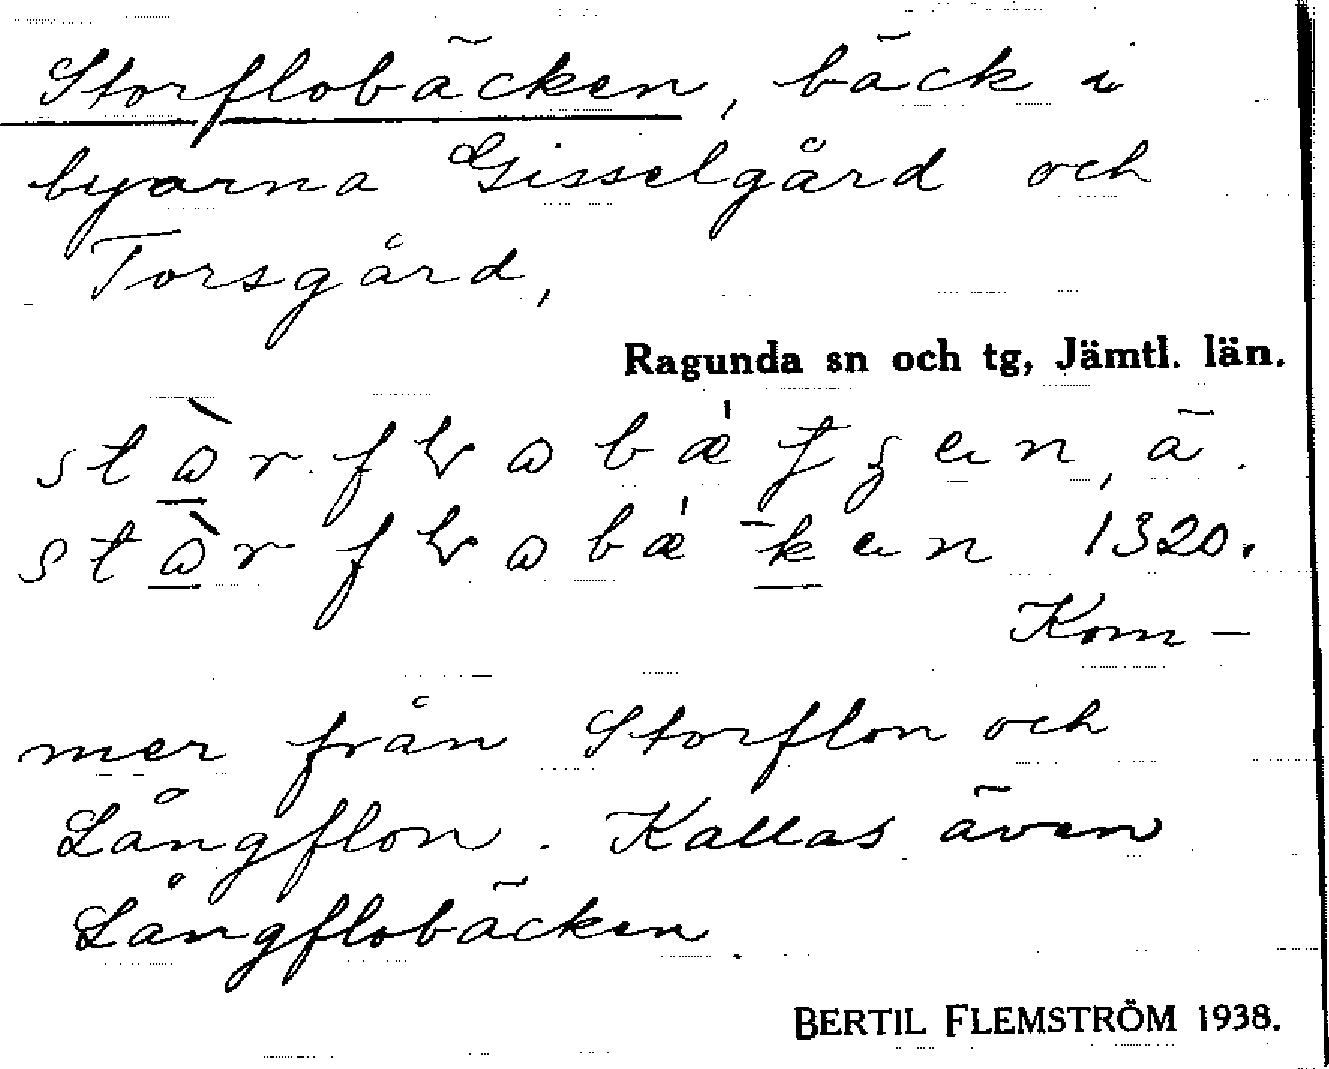 Storflobäcken, bäck i
byarna Gisselgård och
Torsgård,
Ragunda sn och tg, Jämtl. län.
ä.
1320.
Kom-
mer från Storflon och
Långflon. Kallas även
Långflobäcken.
BERTIL FLEMSTRÖM 1938.